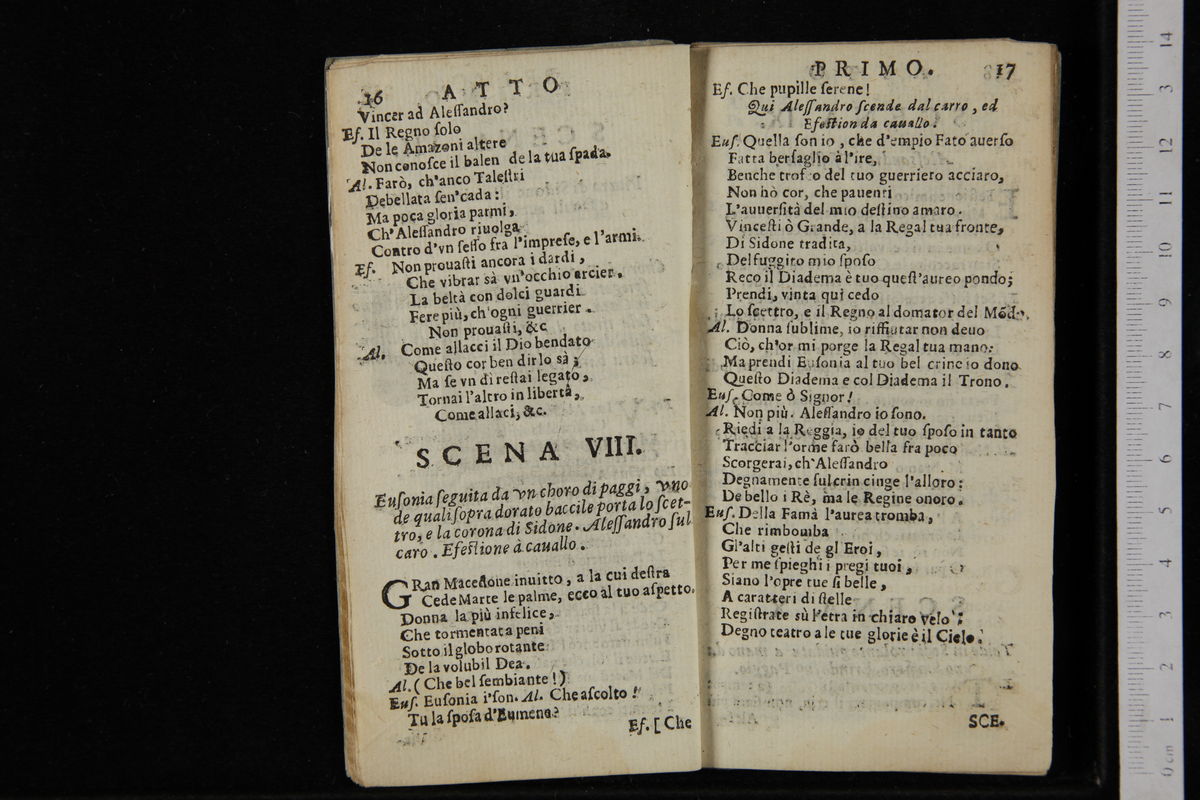 16 ATTO
Vincer ad Alessandro?
Ef. Il Regno solo
De le Amazoni altere
Non conosce il balen de la tua spada.
Al. Farò, ch'anco Talestri
Debellata sen'cada:
Ma poca gloria parmi,
Ch'Alessandro riuolga
Contro d'vn sesso fra l'imprese, e l'armi.
Ef. Non prouasti ancora i dardi,
Che vibrar sà vn'occhio arcier.
La beltà con dolci guardi
Fere più, ch'ogni guerrier.
Non prouasti, &c
Al. Come allacci il Dio bendato
Questo cor ben dir lo sà;
Ma se vn dì restai legato,
Tornai l'altro in libertà,
Come allaci, &c.
SCENA VIII.
Eusonia seguita da vn choro di paggi, vno
de quali sopra dorato baccile porta lo scet-
tro, e la corona di Sidone. Alessandro sul
caro. Efestione à cauallo.
GRan Macedone inuitto, a la cui destra
Cede Marte le palme, ecco al tuo aspetto,
Donna la più infelice,
Che tormentata peni
Sotto il globo rotante
De la volubil Dea.
Al. (Che bel sembiante!)
Eus. Eusonia i'son. Al. Che ascolto!
Tu la sposa d'Eumene?
Ef. [Che
PRIMO. 17
Ef. Che pupille serene!
Qui Alessandro scende dal carro, ed
Efestion da cauallo.
Eus. Quella son io, che d'empio Fato auerso
Fatta bersaglio à l'ire,
Benche trofeo del tuo guerriero acciaro,
Non hò cor, che pauenti
L'auuersità del mio destino amaro.
Vincesti ò Grande, a la Regal tua fronte,
Di Sidone tradita,
Del fuggito mio sposo
Reco il Diadema è tuo quest'aureo pondo;
Prendi, vinta qui cedo
Lo scettro, e il Regno al domator del Mõdo.
Al. Donna sublime, io riffiutar non deuo
Ciò, ch'or mi porge la Regal tua mano:
Ma prendi Eusonia al tuo bel crine io dono
Questo Diadema e col Diadema il Trono.
Eus. Come ò Signor!
Al. Non più. Alessandro io sono.
Riedi a la Reggia, io del tuo sposo in tanto
Tracciar l'orme farò bella fra poco
Scorgerai, ch'Alessandro
Degnamente sul crin cinge l'alloro:
De bello i Rè, ma le Regine onoro.
Eus. Della Famà l'aurea tromba,
Che rimbomba
Gl'alti gesti de gl Eroi,
Per me spieghi i pregi tuoi,
Siano l'opre tue sì belle,
A caratteri di stelle
Registrate sù l'etra in chiaro velo:
Degno teatro a le tue glorie è il Cielo.
SCE.